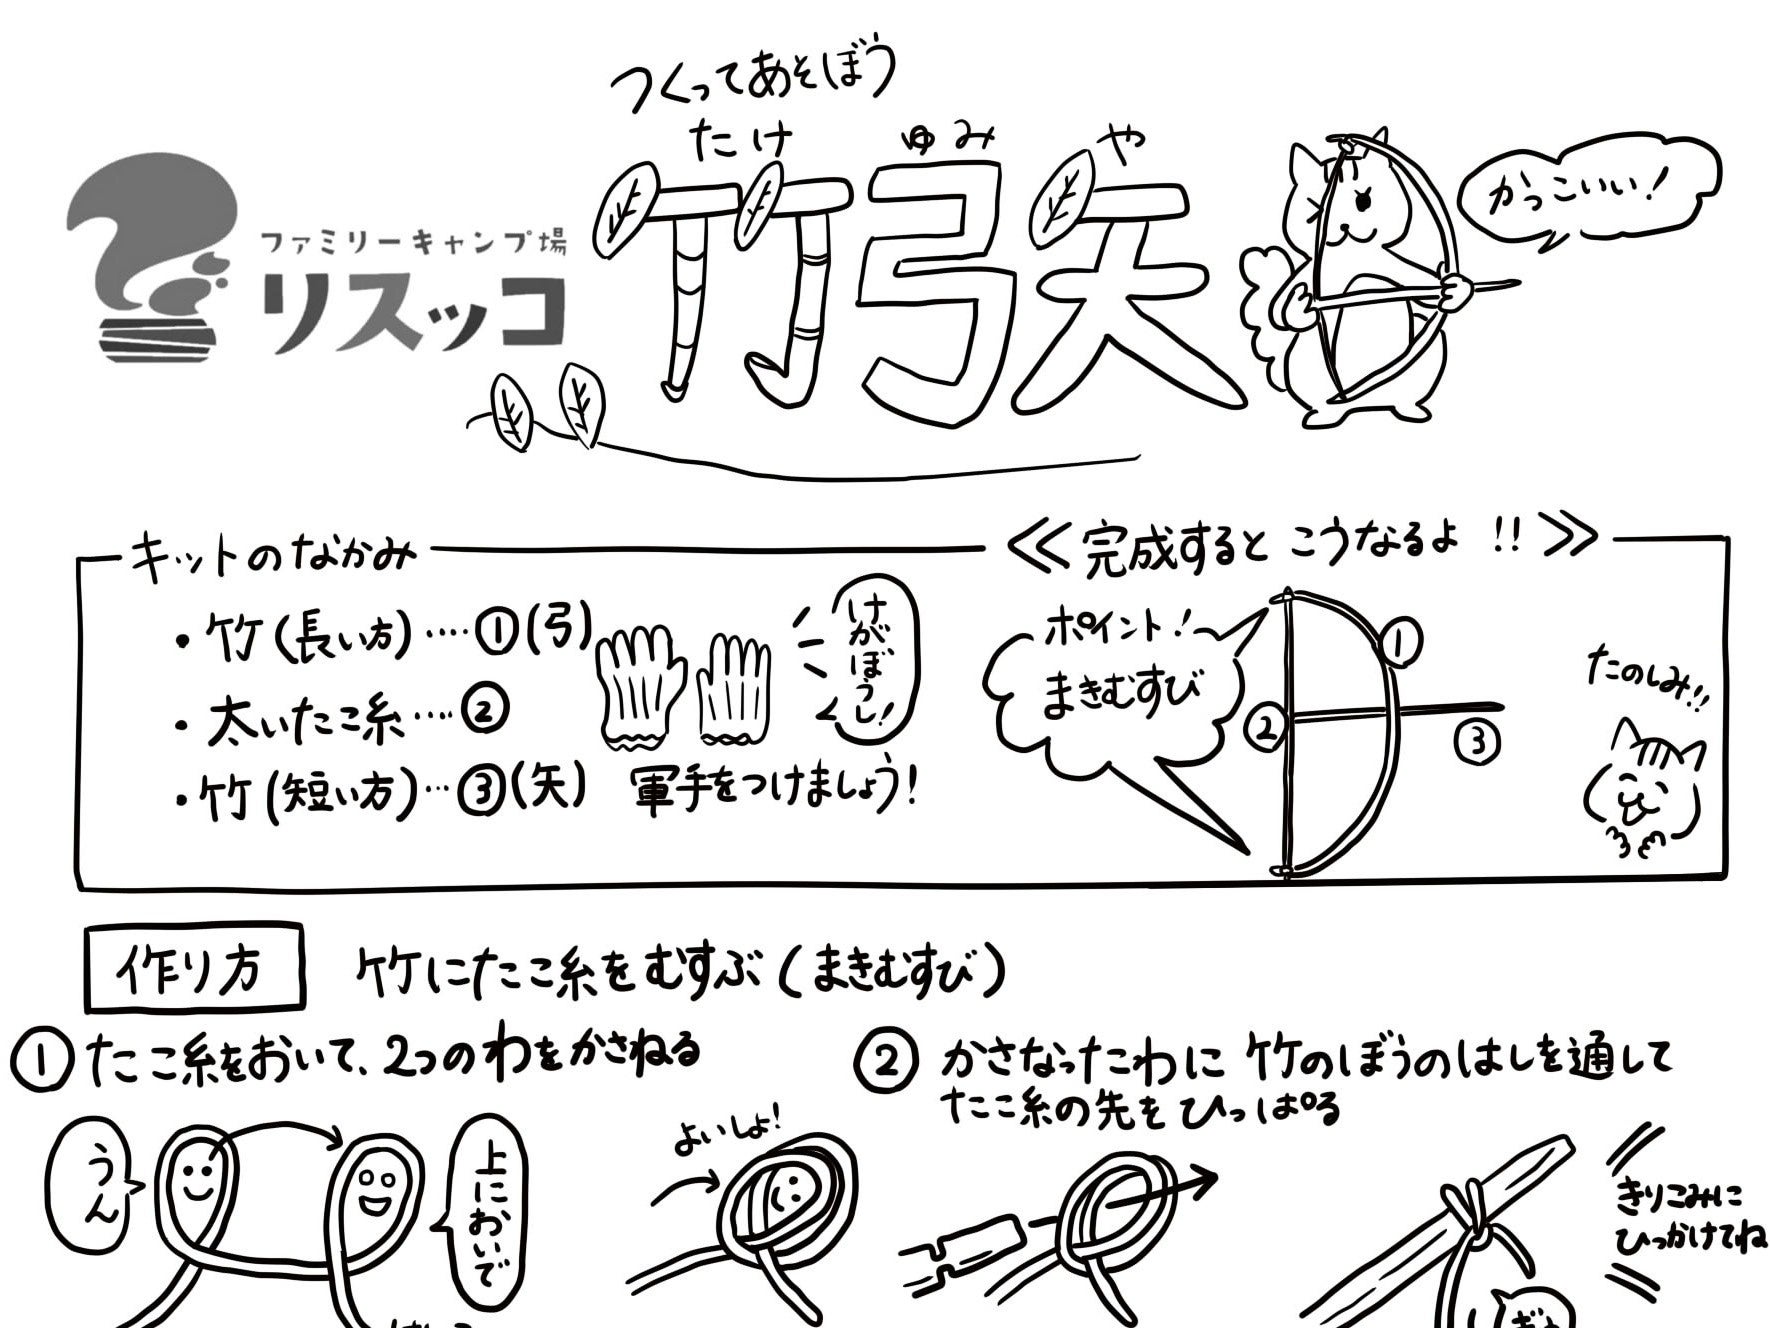 つくってあそぼう
たけ ゆみ や
竹弓矢
ファミリーキャンプ場
リスッコ
かっこいい!
キットのなかみ
・竹(長い方)‥‥①(弓)
・太いたこ糸‥‥②
・竹(短い方)…③(矢)
けがぼうし!
軍手をつけましょう!
≪完成するとこうなるよ!!≫
ポイント!
まきむすび
①
②
③
たのしみ!!
作り方 竹にたこ糸をむすぶ(まきむすび)
①たこ糸をおいて、2つのわをかさねる
うん
上においで
よいしょ!
②かさなったわに竹のぼうのはしを通して
たこ糸の先をひっぱる
きりこみに
ひっかけてね